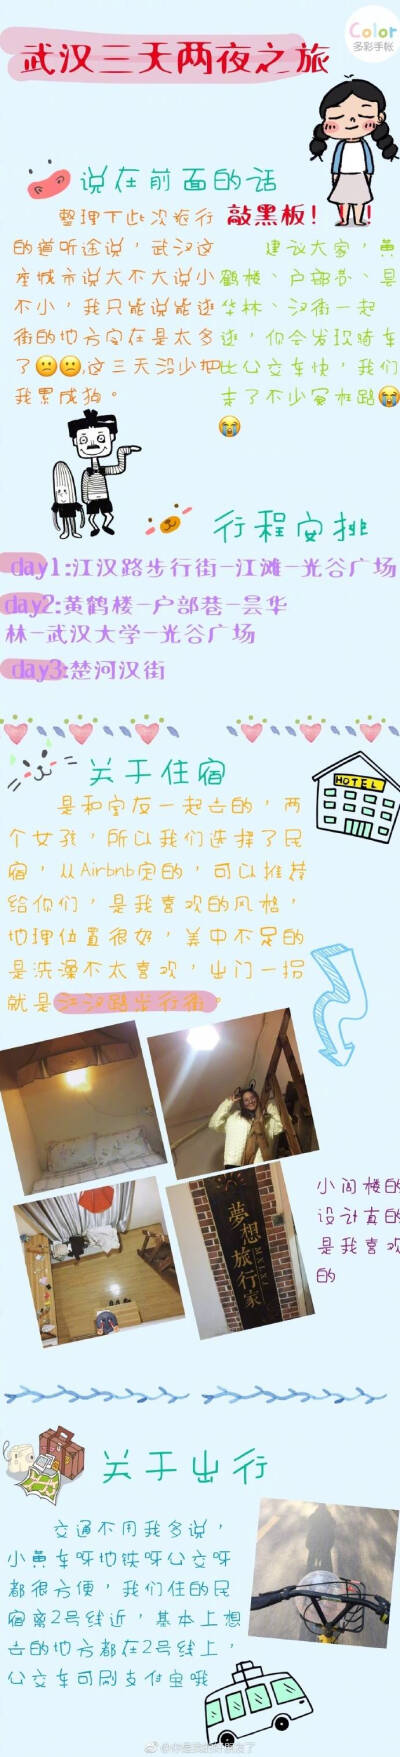 Color
多彩手帐
武汉三天两夜之旅
说在前面的话
整理下此次旅行
的道听途说，武汉这
座城市说大不大说小
不小，我只能说能逛
街的地方实在是太多
了😕😕,这三天没少把
我累成狗。
敲黑板！！！
建议大家，黄
鹤楼、户部巷、昙
华林、汉街一起
逛，你会发现骑车
比公交车快，我们
走了不少冤枉路😭
😭
行程安排
day1:江汉路步行街-江滩-光谷广场
day2:黄鹤楼-户部巷-昙华
林-武汉大学-光谷广场
day3:楚河汉街
关于住宿
HOTEL
是和室友一起去的，两
个女孩，所以我们选择了民
宿，从Airbnb定的，可以推荐
给你们，是我喜欢的风格，
地理位置很好，美中不足的
是洗澡不太喜欢，出门一拐
就是江汉路步行街。
夢想旅行家
小阁楼的
设计真的
是我喜欢
的
关于出行
交通不用我多说，
小黄车呀地铁呀公交呀
都很方便，我们住的民
宿离2号线近，基本上想
去的地方都在2号线上，
公交车可刷支付宝哦